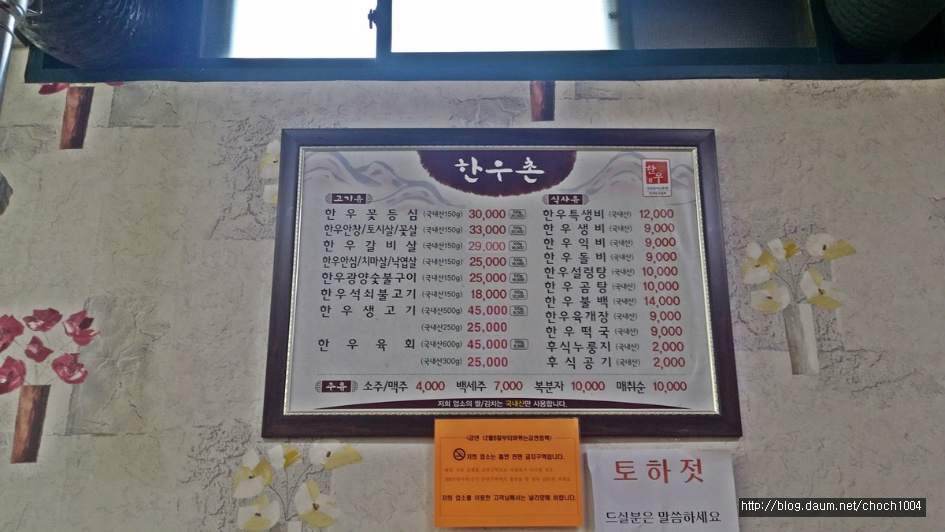 한우촌
한우
고기류
한우꽃등심 (국내산150g) 30,000
한우안창/토시살/꽃살 (국내산150g) 33,000
한우갈비살 (국내산150g) 29,000
한우안심/치마살/낙엽살 (국내산150g) 25,000
한우광양숯불구이 (국내산150g) 25,000
한우석쇠불고기 (국내산150g) 18,000
한우생고기 (국내산500g) 45,000
(국내산250g) 25,000
한우육회 (국내산600g) 45,000
(국내산300g) 25,000
식사류
한우특생비 (국내산) 12,000
한우생비 (국내산) 9,000
한우익비 (국내산) 9,000
한우돌비 (국내산) 9,000
한우설렁탕 (국내산) 10,000
한우곰탕 (국내산) 10,000
한우불백 (국내산) 14,000
한우육개장 (국내산) 9,000
한우떡국 (국내산) 9,000
후식누룽지 (국내산) 2,000
후식공기 (국내산) 2,000
주류 소주/맥주 4,000 백세주 7,000 복분자 10,000 매취순 10,000
저희 업소의 쌀/김치는 국내산만 사용합니다.
저희 업소는 흡연 전면 금지구역입니다.
토하젓
드실분은 말씀하세요
http://blog.daum.net/choch1004